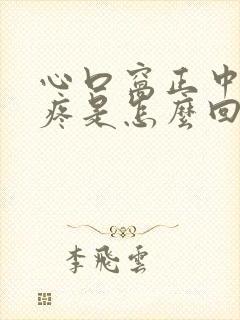 心口窩正中
疼是怎麼回
李飛雲